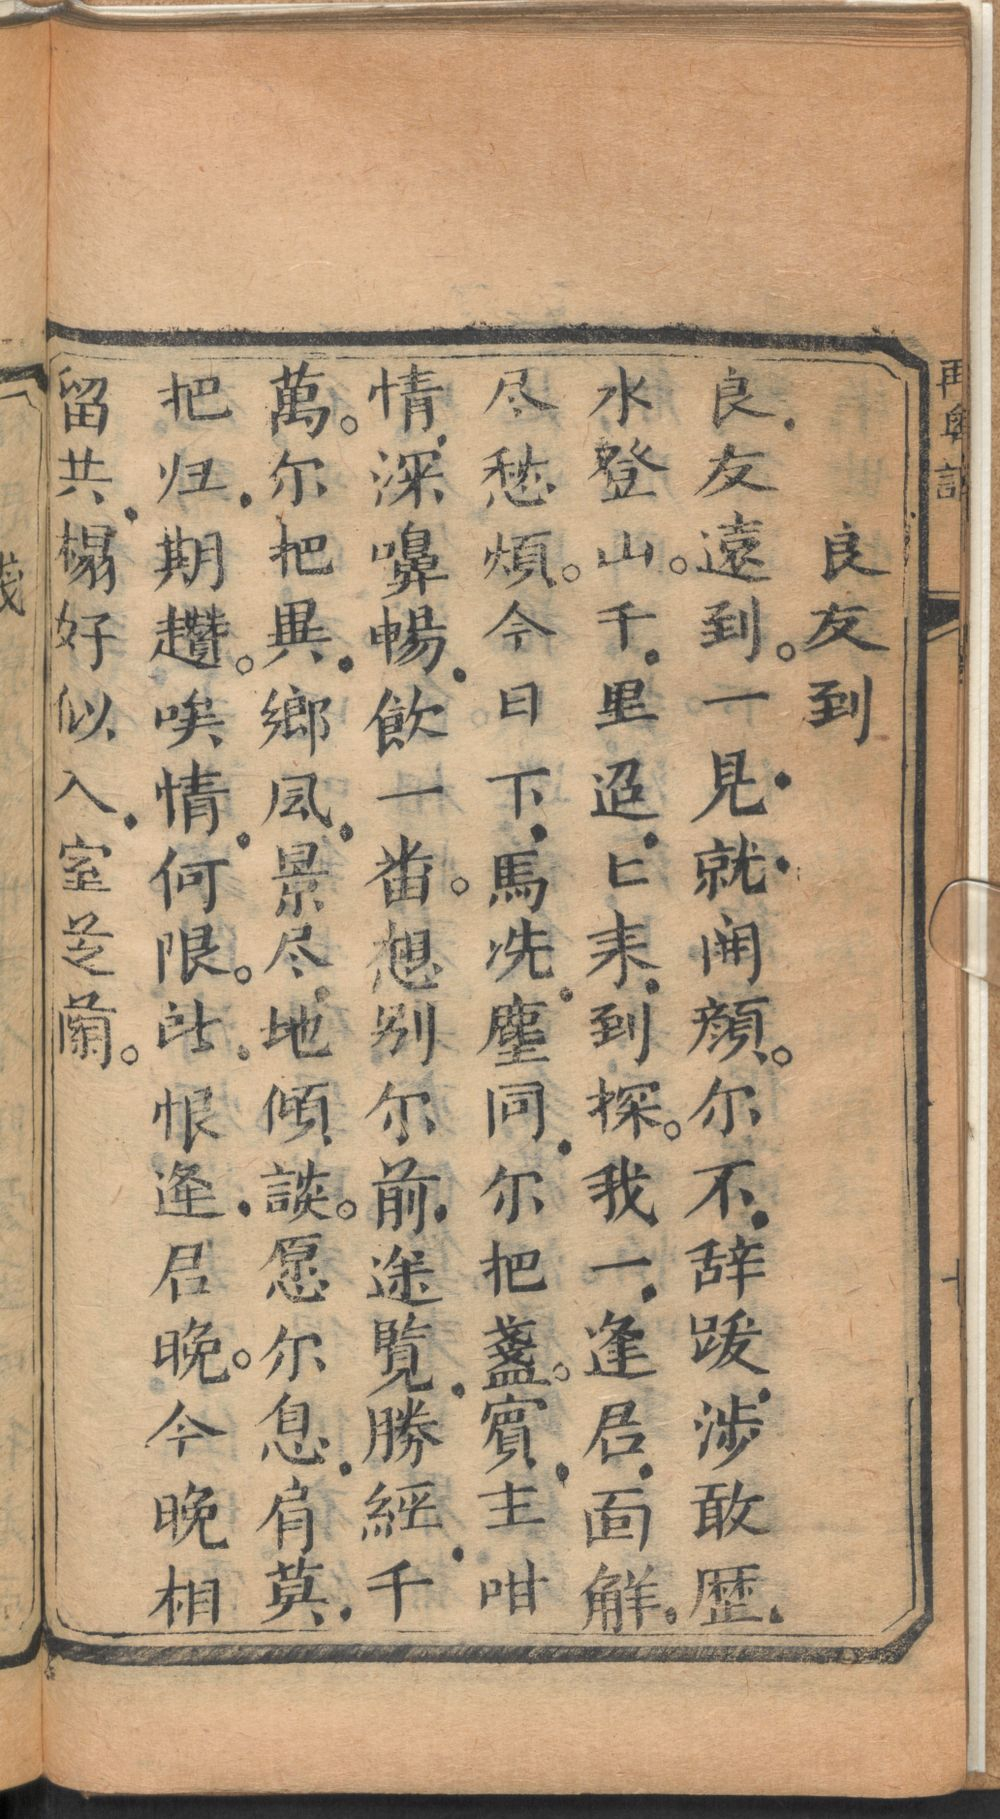 再粤
良友到
良友遠到。一見就開顔。尔不辞跋涉敢歷
水登山。千里迢匕来到探。我一逢君面解
尽愁煩。今日下馬洗塵同尔把盞。賓主咁
情深嚊暢飲一畨。想别尔前途覧勝經千
萬。尔把異鄉凨景尽地傾談。愿尔息肩莫
把归期趲。唉情何限。此恨逢君晚。今晚相
留共榻好似入室芝蘭。